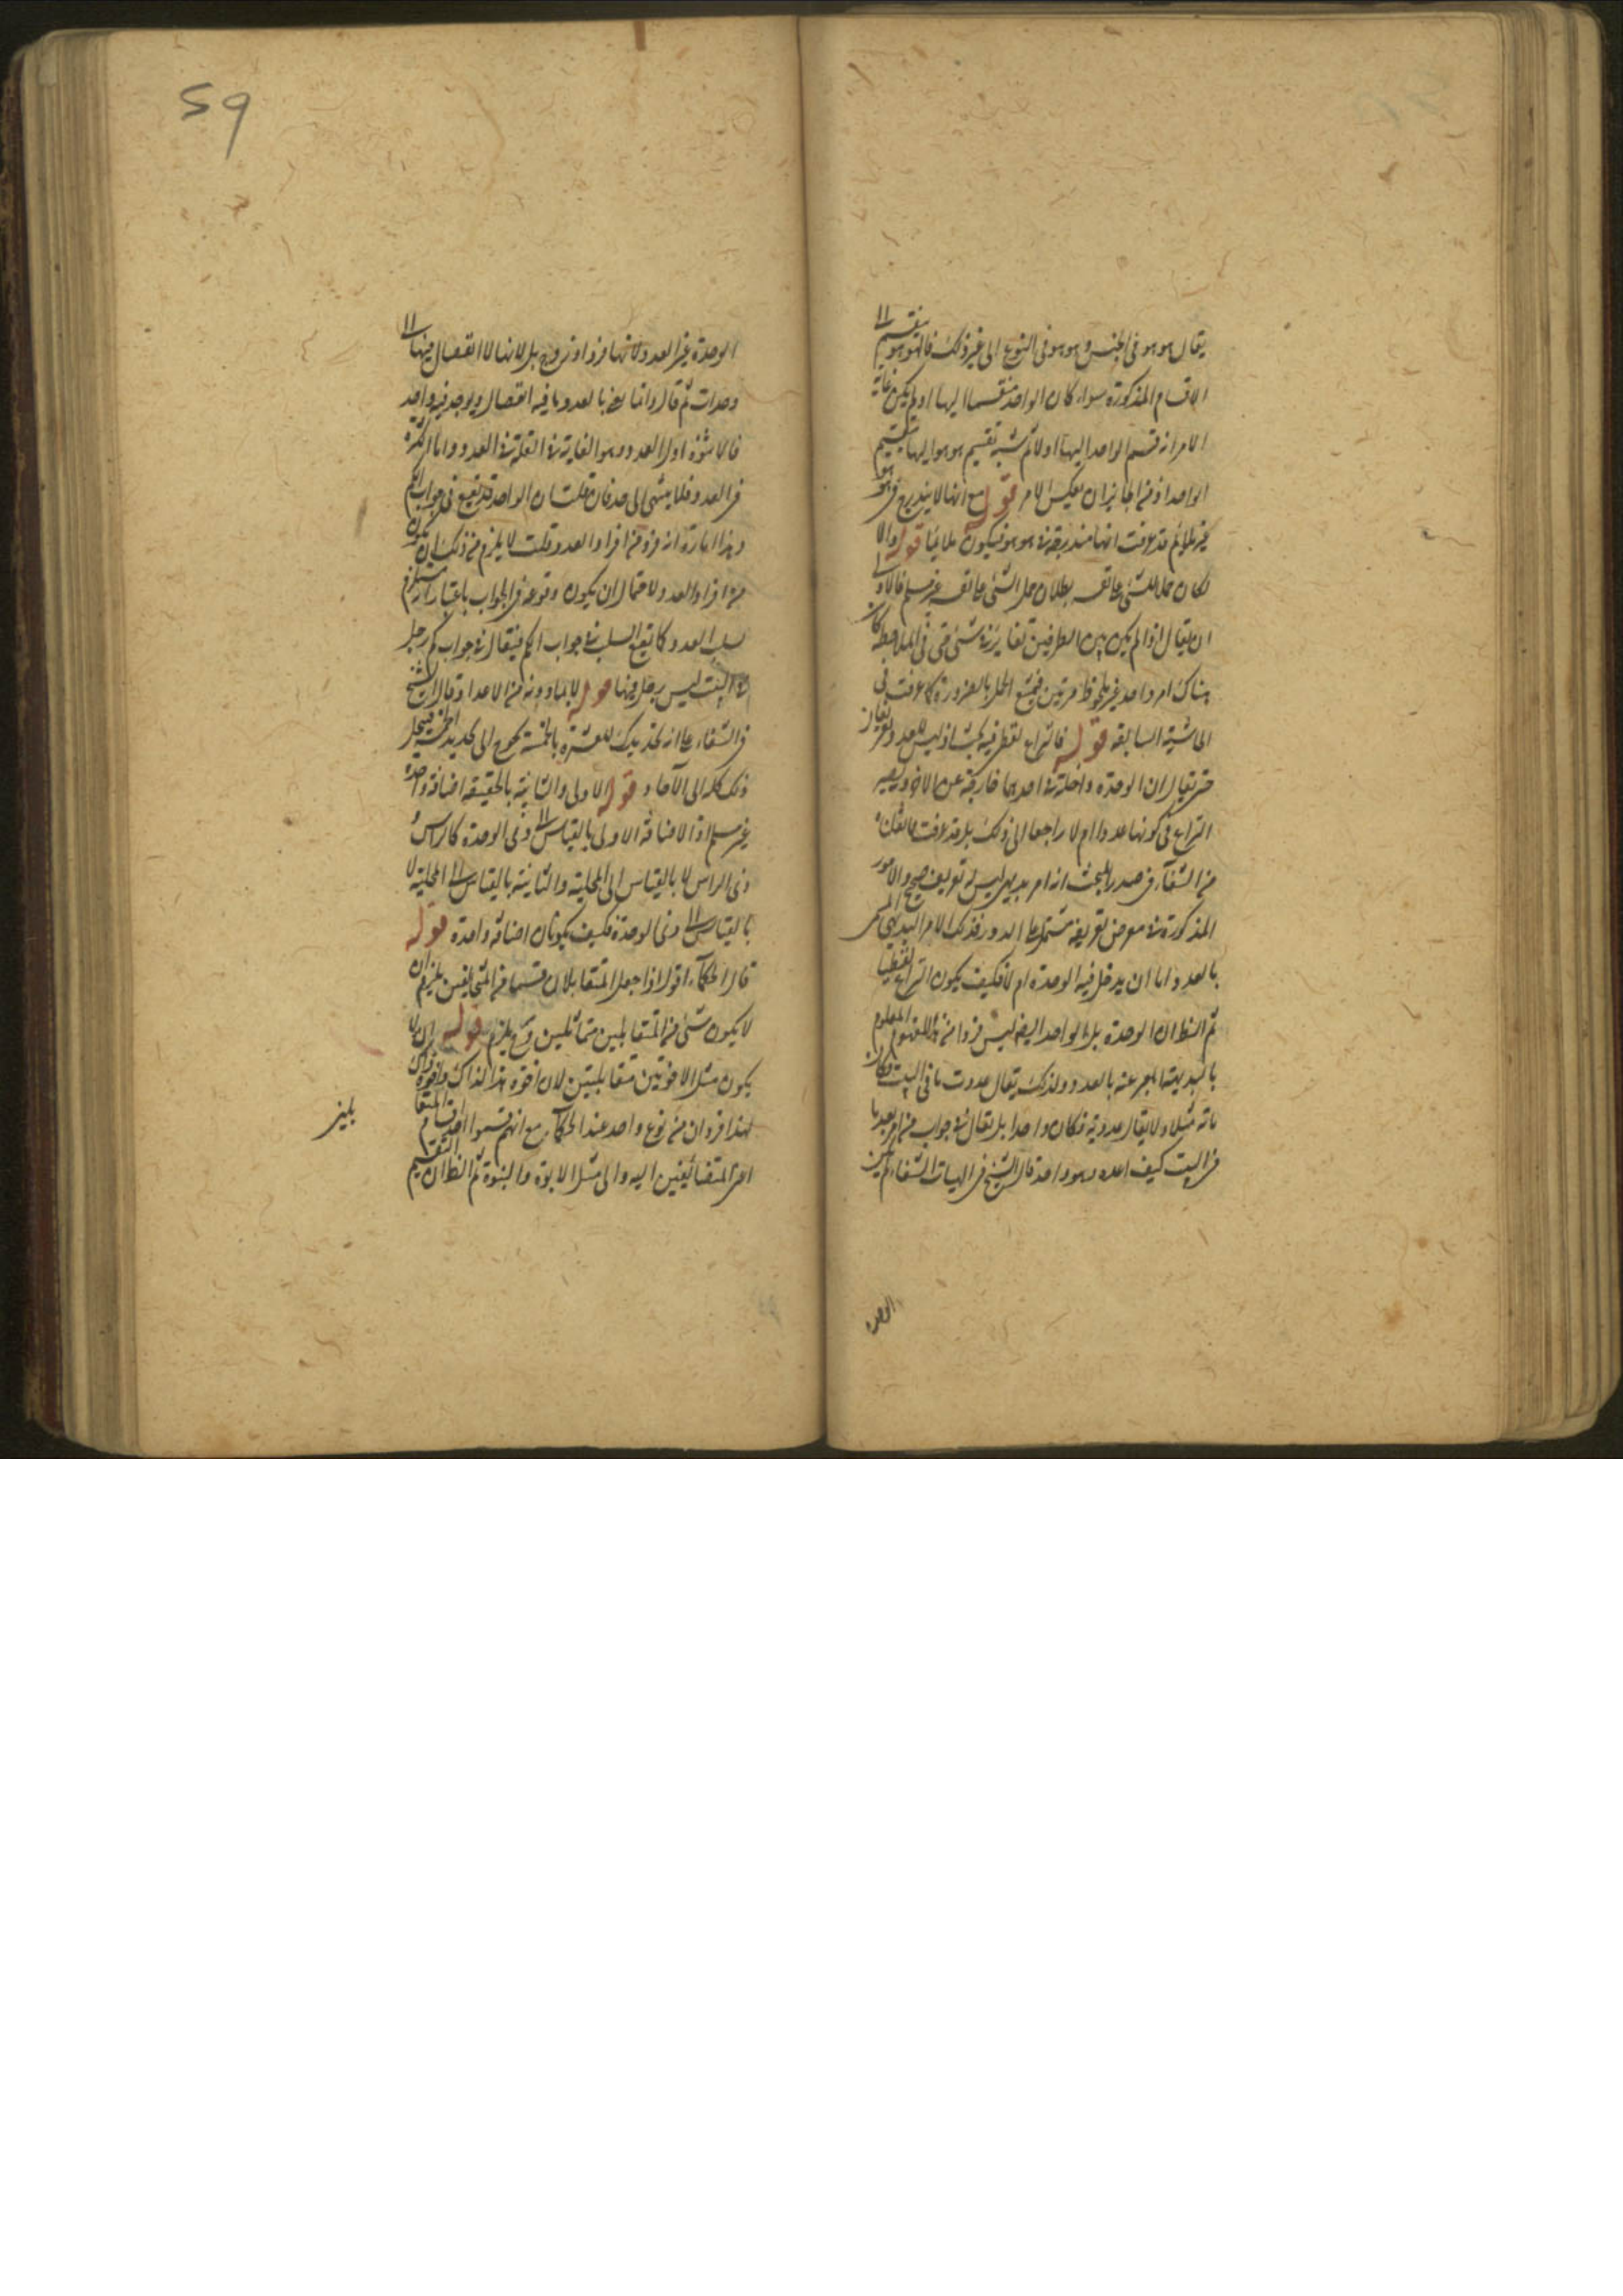 يقال هو هو في الجنس و هو هو في النوع الى غير ذلك فالهو هو ينقسم الى
الاقسام المذكورة سواء كان الواحد منقسما اليها او لم يكن غاية
الامر انه قسم الواحد اليها اولا ثم شبه تقسيم هو هو اليها بتقسيم
الواحد اذ من الجايز ان يعكس الامر قوله مع انها لا يندرج في هو هو
غير ملايم قد عرفت انها مندرجة في هو هو فيكون ملايما قوله والا
لكان حمل الشئ على نفسه بطلان حمل الشئ على نفسه غير مسلم فالاولى
ان يقال اذا لم يكن بين الطرفين تغاير في شئ حتى في الملاحظة كان
هناك امر واحد غير ملحوظ مرتين فيمتنع الحمل بالضرورة كما عرفت في
الحاشية السابقة قوله فالنزاع لفظي فيه بحث اذ ليس للعدد تعريفان
حتى يقال ان الوحدة داخلة في احدهما خارجة عن الاخر ويصير
النزاع في كونها عددا ام لا راجعا الى ذلك بل قد عرفت مما نقلناه
من الشفاء في صدر المبحث انه امر بديهي ليس له تعريف صحيح والامور
المذكورة في معرض تعريفه مشتمل على الدور فذلك الامر البديهي المسمى
بالعدد اما ان يدخل فيه الوحدة ام لا فكيف يكون النزاع لفظيا
ثم الظ ان الوحدة بل الواحد ايضا ليس فردا من المفهوم المعلوم
بالبديهة المعبر عنه بالعدد ولذلك يقال عددت ما في البيت فكان
مائة مثلا ولا يقال عددته فكان واحدا بل يقال في جواب من امر بعد ما
في البيت كيف اعده وهو واحد قال الشيخ في الهيات الشفاء لم يكن
الوحدة
الوحدة غير العدد لانها فرد او زوج بل لانها لا انفصال فيها الى
وحدات ثم قال وانما نعني بالعدد ما فيه انفصال ويوجد فيه واحد
فالاثنوة اول العدد وهو الغاية في القلة في العدد واما الكثرة
في العدد فلا ينتهي الى حد فان قلت ان الواحد قد يقع في جواب كم
وهذا امارة انه فرد من افراد العدد قلت لا يلزم من ذلك ان يكون
من افراد العدد لاحتمال ان يكون وقوعه في الجواب باعتبار انه يستلزم
سلب العدد كما يقع السلب في جواب الكم فيقال في جواب كم رجل
في البيت ليس رجل فيها قوله لا بما دونه من الاعداد قال الشيخ
في الشفاء على ان تحديدك للعشرة بالخمسة يحوج الى تحديد الخمسة فينحل
ذلك كله الى الآحاد قوله الاولى والثانية بالحقيقة اضافة واحدة
غير مسلم اذ الاضافة الاولى بالقياس الى ذي الوحدة كالراس
ذي الراس لا بالقياس الى المحلية والثانية بالقياس الى المحلية لا
بالقياس الى ذي الوحدة فكيف يكونان اضافة واحدة قوله
قال الحكماء اقول اذا جعل المتقابلان قسما من المتخالفين يلزم ان
لا يكون شئ من المتقابلين متماثلين وح يلزم قوله ان لا
يكون مثل الاخوتين متقابلتين لان اخوة هذا لذاك واخوة ذاك
لهذا فردان من نوع واحد عند الحكماء مع انهم قسموا احد اقسام المتقا
اعني المتضائفين اليه والى مثل الابوة والبنوة ثم الظ ان التقسيم
بلين
59